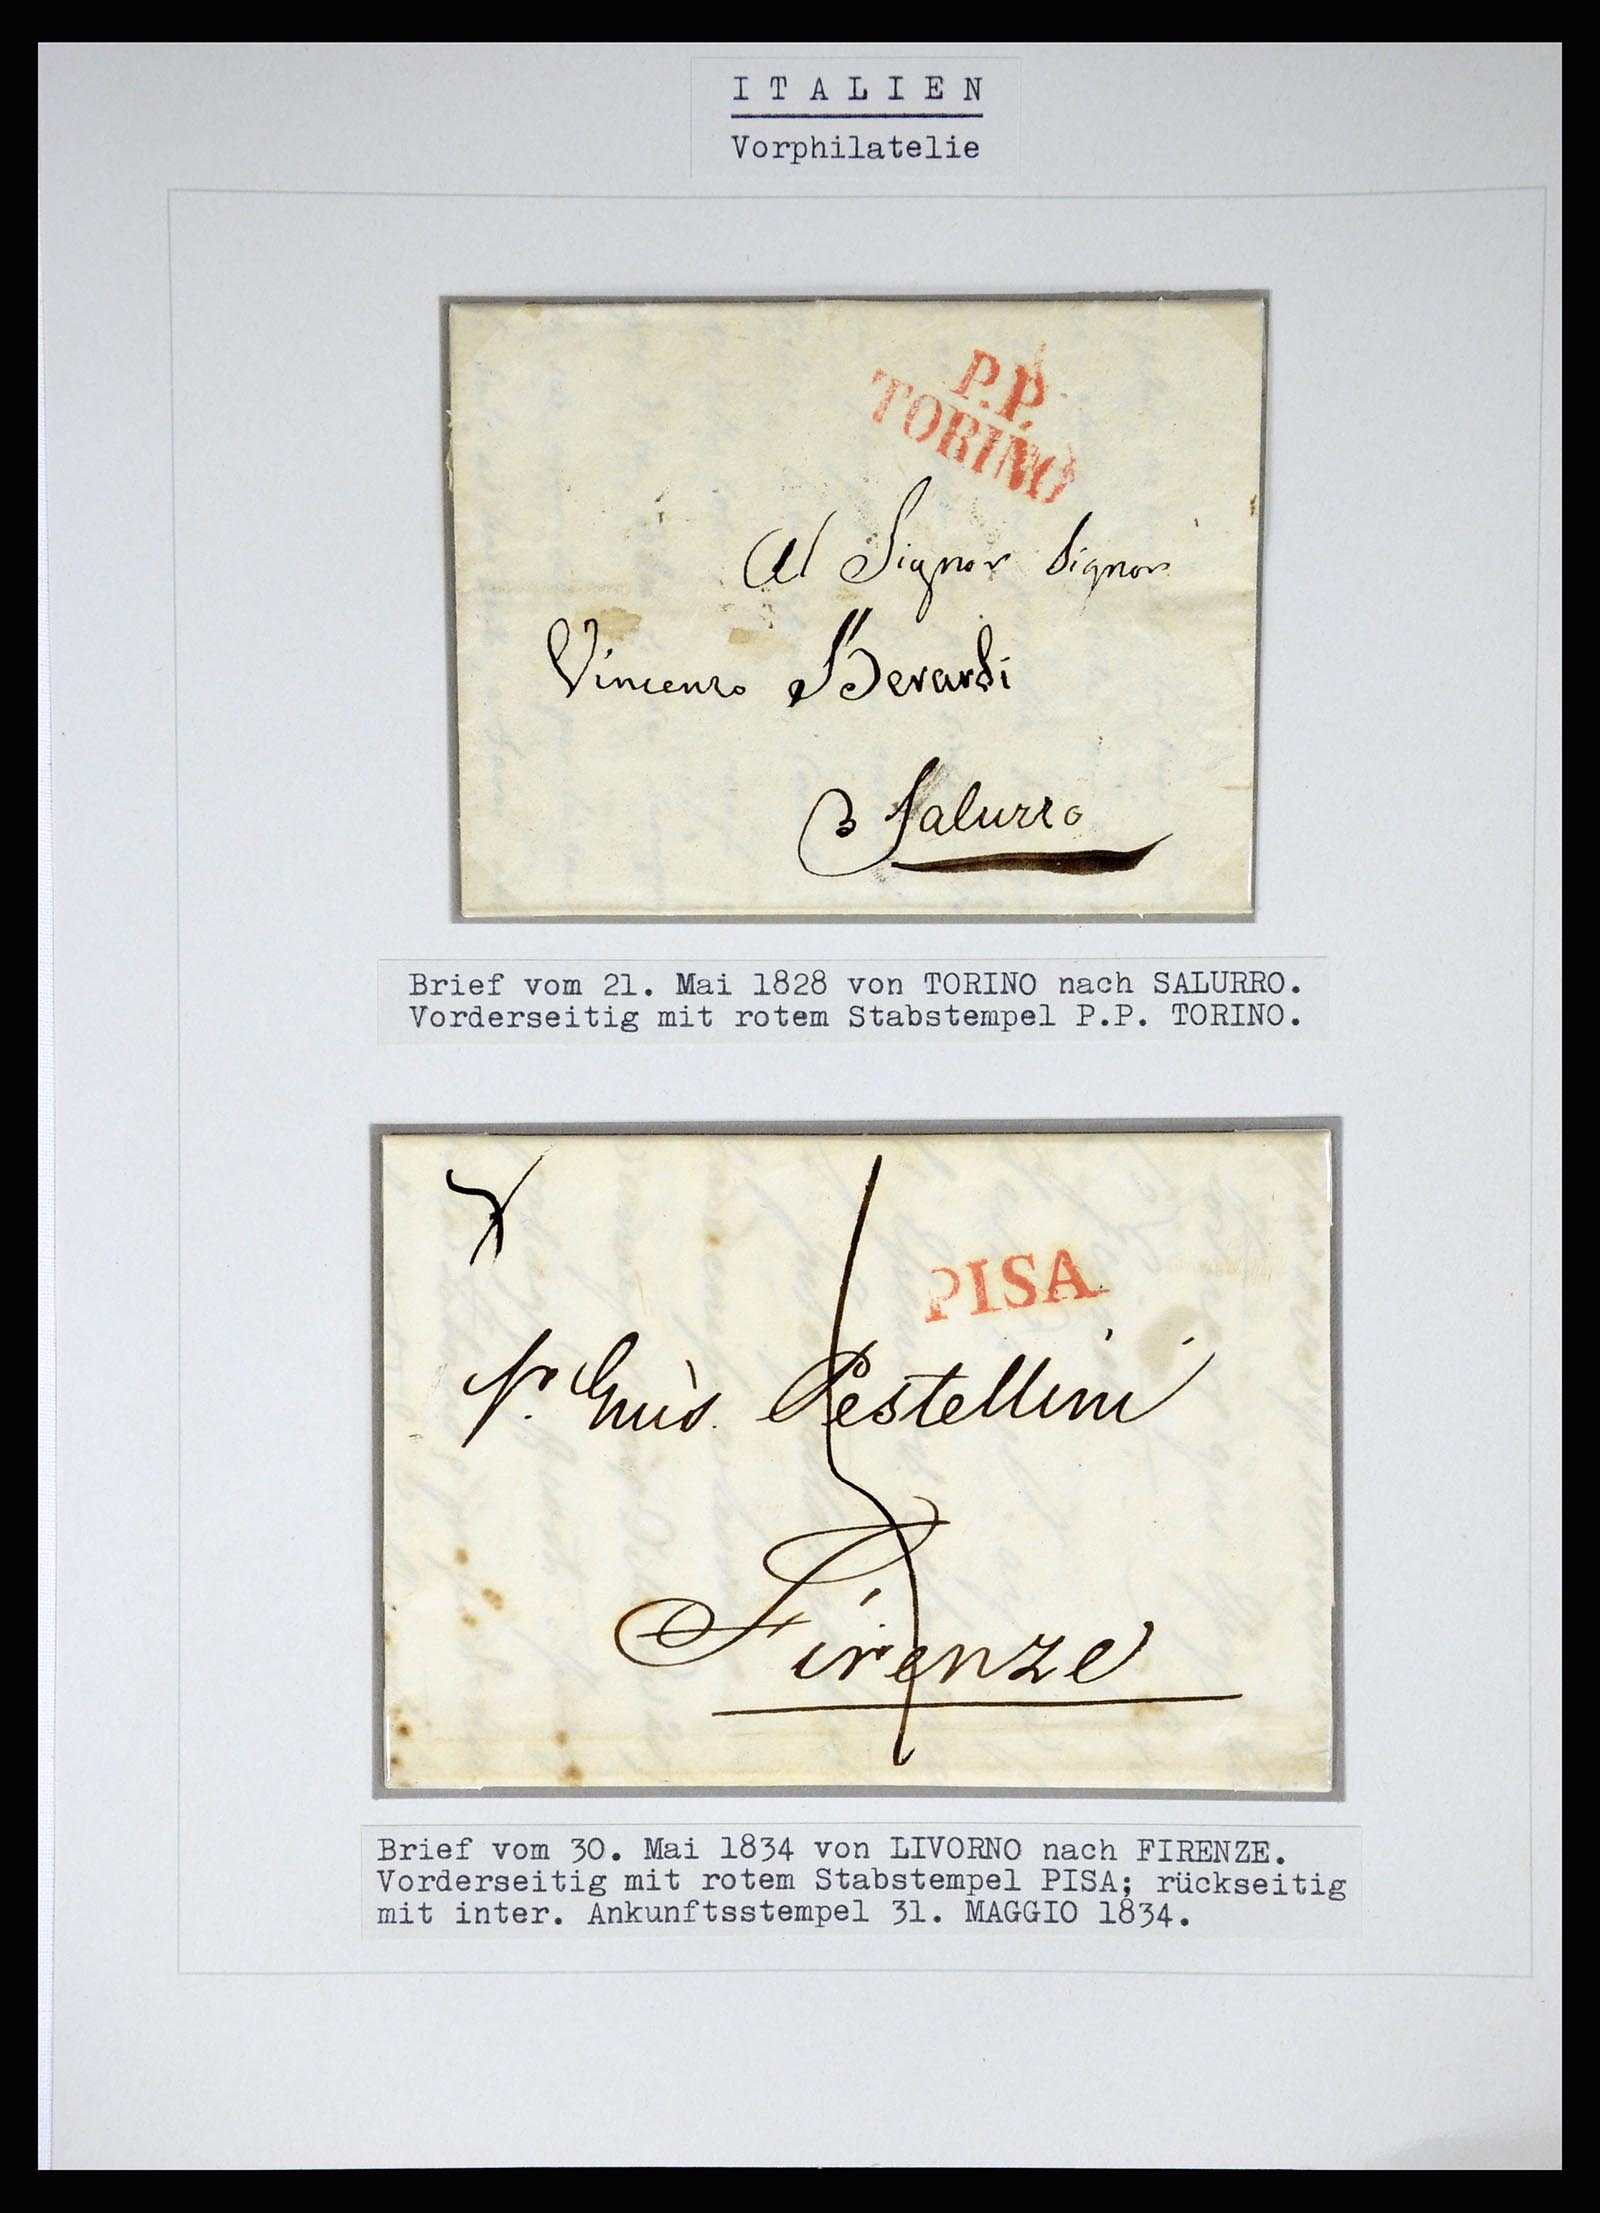 ITALIEN
Vorphilatelie
P.P.
TORINO
Al Signor Signor
Vincenzo Berardi
Saluzzo
Brief vom 21. Mai 1828 von TORINO nach SALURRO.
Vorderseitig mit rotem Stabstempel P.P. TORINO.
PISA
Pestellini
Firenze
Brief vom 30. Mai 1834 von LIVORNO nach FIRENZE.
Vorderseitig mit rotem Stabstempel PISA; rückseitig
mit inter. Ankunftsstempel 31. MAGGIO 1834.